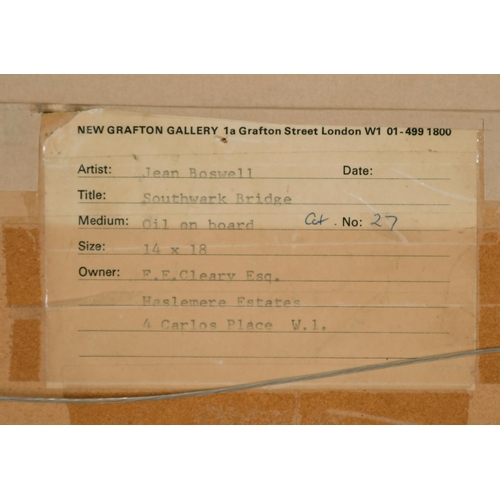 NEW GRAFTON GALLERY 1a Grafton Street London W1 01-499 1800
Artist: Jean Boswell Date:
Title: Southwark Bridge
Medium: Oil on board Cat. No: 27
Size: 14 x 18
Owner: F.E.Cleary Esq.
Haslemere Estates
4 Carlos Place W.1.